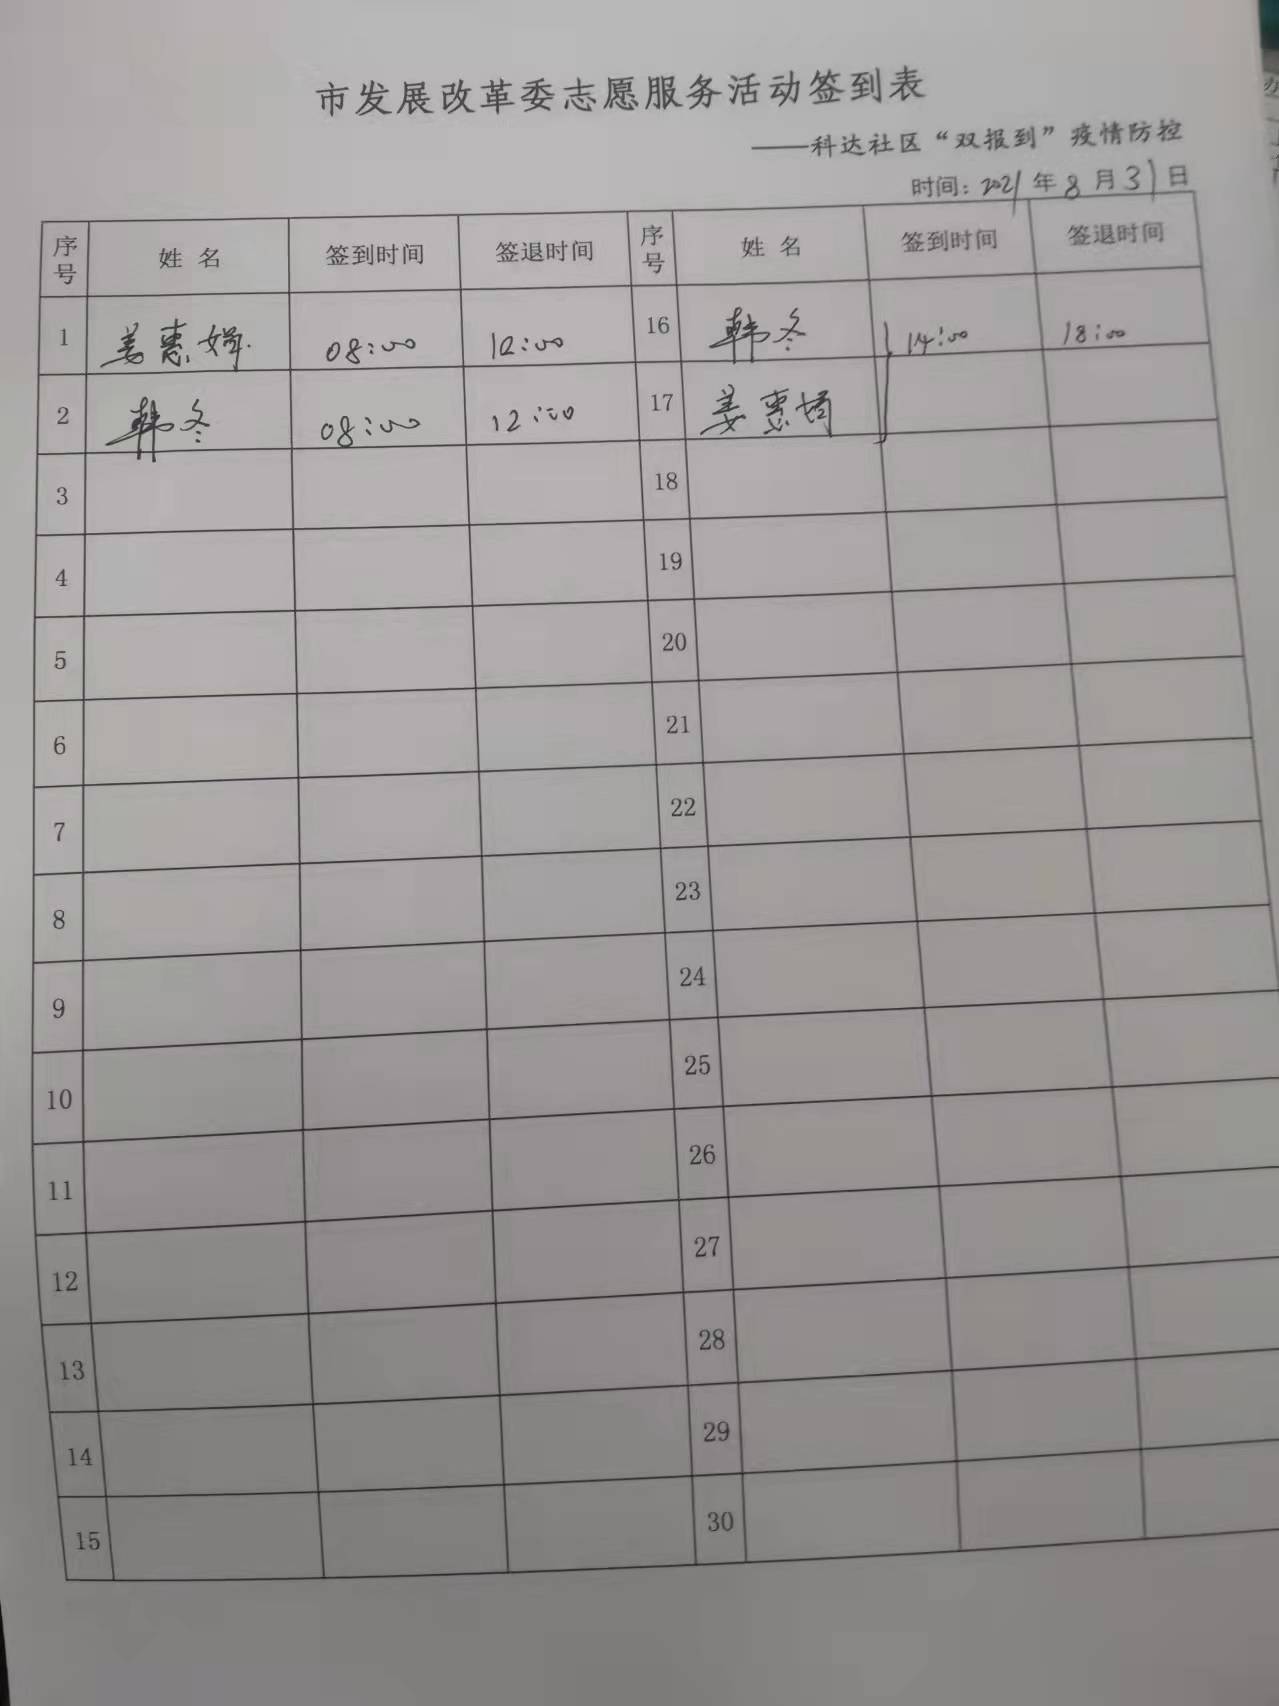 市发展改革委志愿服务活动签到表
——科达社区“双报到”疫情防控
时间：2021年8月31日
序号 姓名 签到时间 签退时间 序号 姓名 签到时间 签退时间
1 姜惠 08:00 12:00 16 韩冬 14:00 18:00
2 韩冬 08:00 12:00 17 姜惠
3 18
4 19
5 20
6 21
7 22
8 23
9 24
10 25
11 26
12 27
13 28
14 29
15 30